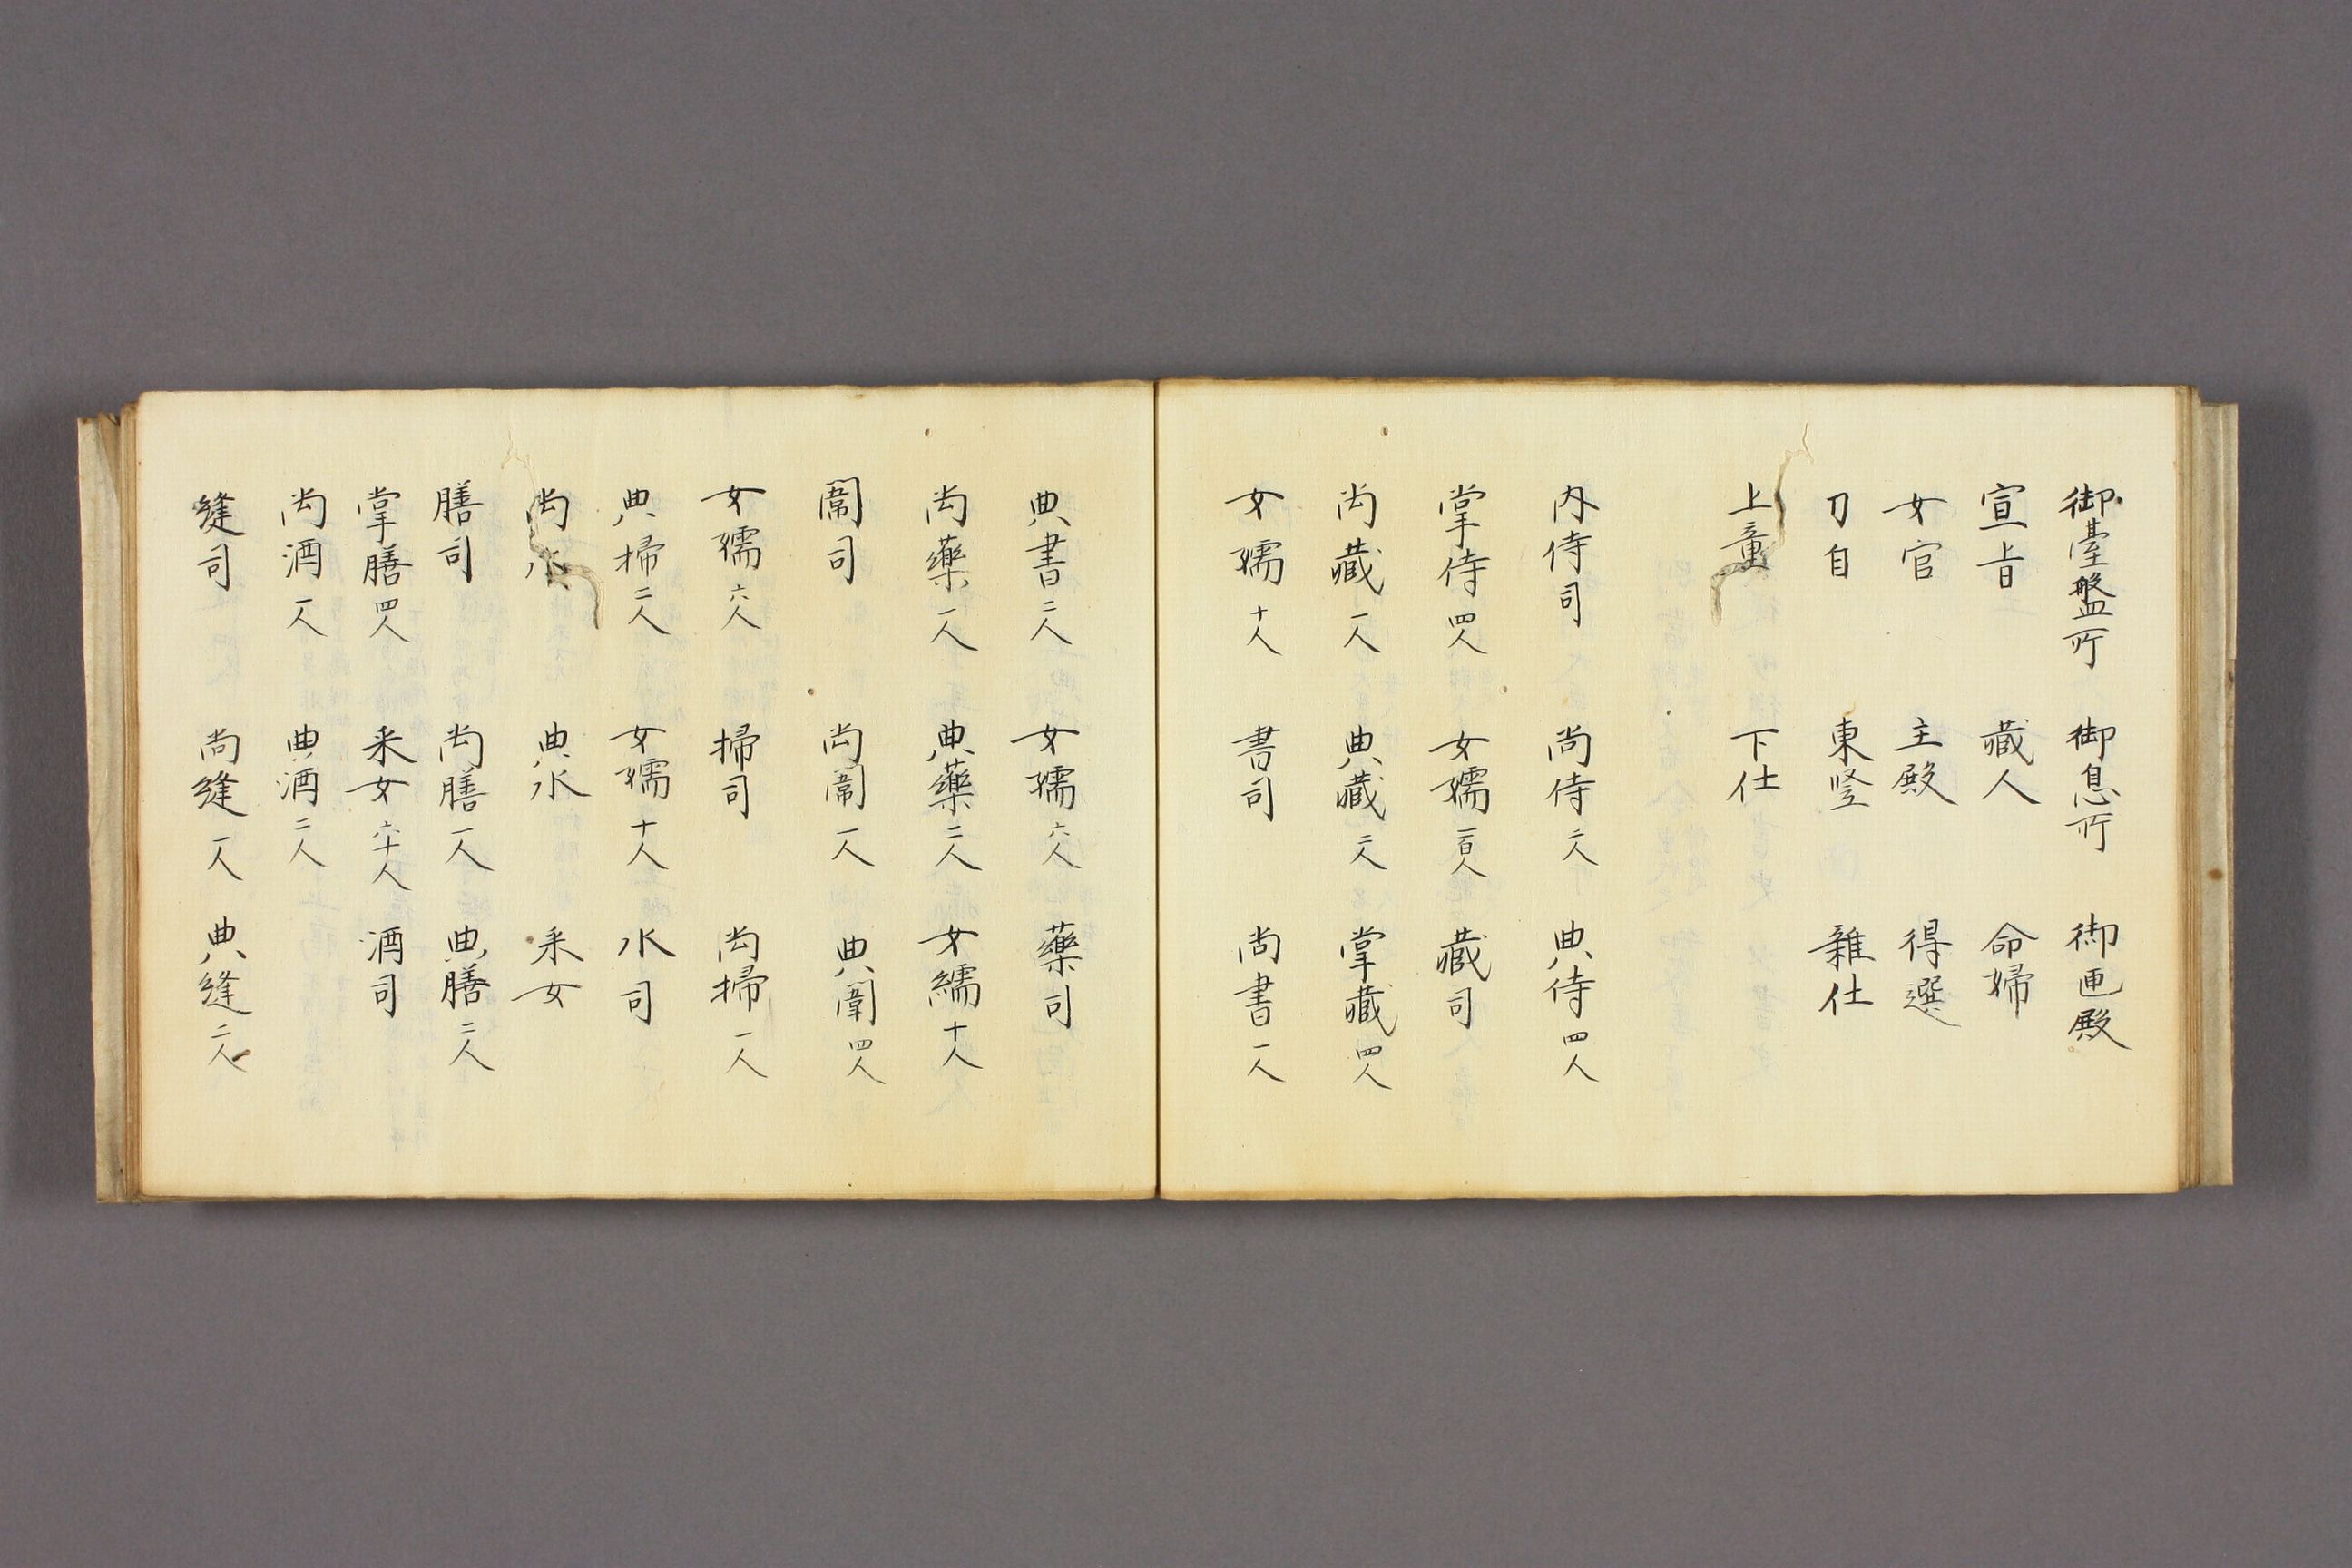 御臺盤所 御息所 御匣殿
宣旨 蔵人 命婦
女官 主殿 得選
刀自 東竪 雜仕
上童 下仕
内侍司 尚侍二人 典侍四人
掌侍四人 女嬬一百人 蔵司
尚蔵一人 典蔵二人 掌蔵四人
女嬬十人 書司 尚書一人
典書二人 女嬬六人 藥司
尚藥一人 典藥二人 女繻十人
闈司 尚闈一人 典闈四人
女嬬六人 掃司 尚掃一人
典掃二人 女嬬十人 水司
尚水 典水 釆女
膳司 尚膳一人 典膳二人
掌膳四人 釆女六十人 酒司
尚酒一人 典酒二人
縫司 尚縫一人 典縫二人